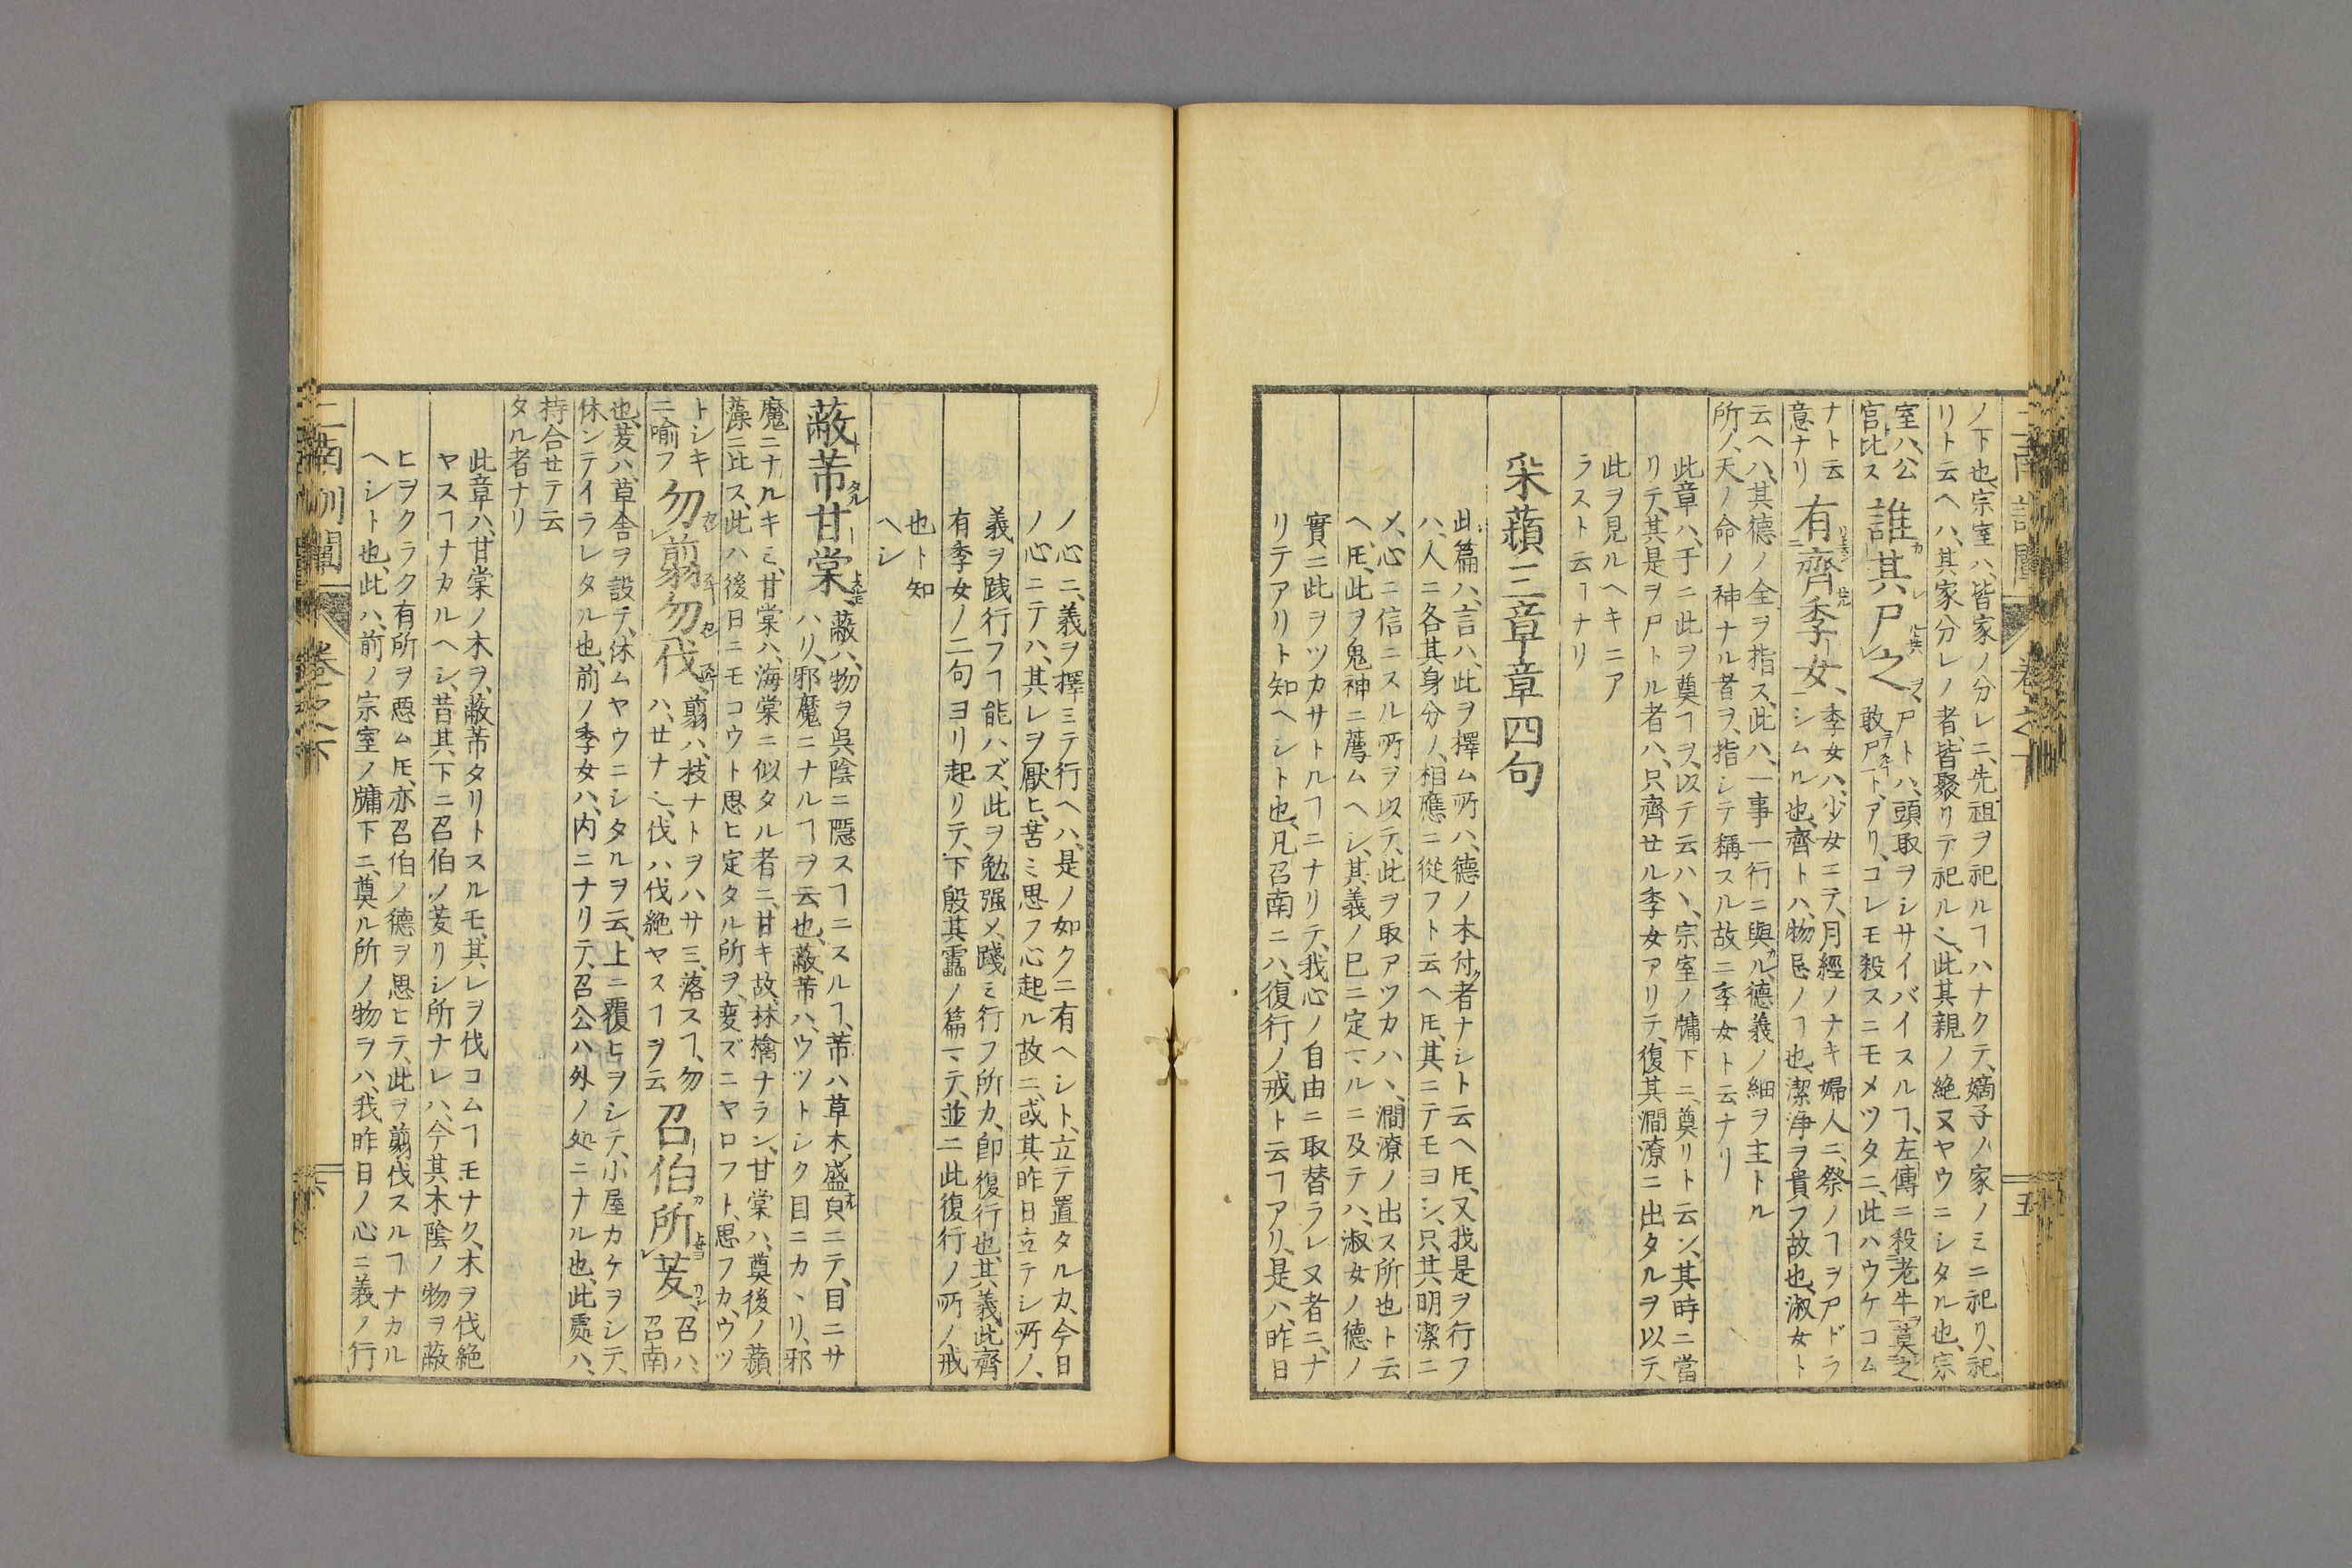 ノ下也、宗室ハ、皆家ノ分レニ、先祖ヲ祀ルヿハナクテ、嫡子ノ家ノミニ祀リ、祀
リト云ヘハ、其家分レノ者、皆聚リテ祀ル也、此其親ノ絶ヌヤウニシタル也、宗
室ハ、公
宮比ス
誰其尸之
尸トハ、頭取ヲシサイバイスルヿ、左傳ニ殺老牛莫之
敢尸ト、アリ、コレモ殺スニモメツタニ、此ハウケコム
ナト云
意ナリ
有齊季女、
季女ハ、少女ニテ、月經ノナキ婦人ニ、祭ノヿヲアドラ
シムル也、齊トハ、物忌ノヿ也、潔浄ヲ貴フ故也、淑女ト
云ヘハ、其德ノ全ヲ指ス、此ハ、一事一行ニ與ル、德義ノ細ヲ主トル
所ノ、天ノ命ノ神ナル者ヲ、指シテ稱スル故ニ季女ト云ナリ
此章ハ、于ニ此ヲ奠ヿヲ、以テ云ハヽ、宗室ノ牗下ニ、奠リト云ン、其時ニ當
リテ、其是ヲ尸トル者ハ、只齊セル季女アリテ、復其澗潦ニ出タルヲ以テ、
此ヲ見ルヘキニア
ラスト云ヿナリ
采蘋三章章四句
此篇ハ、言ハ、此ヲ擇ム所ハ、德ノ本付者ナシト云ヘ𪜈、又我是ヲ行フ
ハ、人ニ各其身分ノ、相應ニ從フト云ヘ𪜈、其ニテモヨシ、只其明潔ニ
〆、心ニ信ニスル所ヲ以テ、此ヲ取アツカハヽ、澗潦ノ出ス所也ト云
ヘ𪜈、此ヲ鬼神ニ薦ムヘシ、其義ノ已ニ定マルニ及テハ、淑女ノ德ノ
實ニ此ヲツカサトルヿニナリテ、我心ノ自由ニ取替ラレヌ者ニ、ナ
リテアリト知ヘシト也、凡召南ニハ、復行ノ戒ト云ヿアリ、是ハ、昨日
ノ心ニ、義ヲ擇ミテ行ヘハ、是ノ如クニ有ヘシト、立テ置タルカ、今日
ノ心ニテハ、其レヲ厭ヒ、苦ミ思フ心起ル故ニ、或其昨日立テシ所ノ、
義ヲ践行フヿ能ハズ、此ヲ勉强〆、踐ミ行フ所カ、卽復行也、其義、此齊
有季女ノ二句ヨリ起リテ、下殷其靁ノ篇マテ、並ニ此復行ノ所ノ戒
也ト知
ヘシ
蔽芾甘棠
蔽ハ、物ヲ吳陰ニ隠スヿニスルヿ、芾ハ草木、盛貟ニテ、目ニサ
ハリ、邪魔ニナルヿヲ云也、蔽芾ハ、ウツトシク目ニカヽリ、邪
魔ニナルキミ、甘棠ハ、海棠ニ似タル者ニ、甘キ故、林檎ナラン、甘棠ハ、奠後ノ蘋
藻ニ比ス、此ハ後日ニモコウト思ヒ定タル所ヲ、変ズニヤロフト、思フカ、ウツ
トシキ
ニ喻フ
勿翦勿伐
翦ハ、枝ナトヲハサミ、落スヿ、勿
ハ、セナ也、伐ハ伐絶ヤスヿヲ云
召伯所茇
召ハ、
召南
也、茇ハ、草舎ヲ設テ、休ムヤウニシタルヲ云、上ニ覆ヒヲシテ、小屋カケヲシテ、
休ンテイラレタル也、前ノ季女ハ、内ニナリテ、召公ハ、外ノ処ニナル也、此處ハ、
持合セテ云
タル者ナリ
此章ハ、甘棠ノ木ヲ、蔽芾タリトスルモ、其レヲ伐コムヿモナク、木ヲ伐絶
ヤスヿナカルヘシ、昔其下ニ召伯ノ茇リシ所ナレハ、今其木陰ノ物ヲ蔽
ヒヲクラク有所ヲ悪ム𪜈、亦召伯ノ德ヲ思ヒテ、此ヲ翦伐スルヿナカル
ヘシト也、此ハ、前ノ宗室ノ牗下ニ、奠ル所ノ物ヲハ、我昨日ノ心ニ義ノ行
二南訓闡
卷之下
五